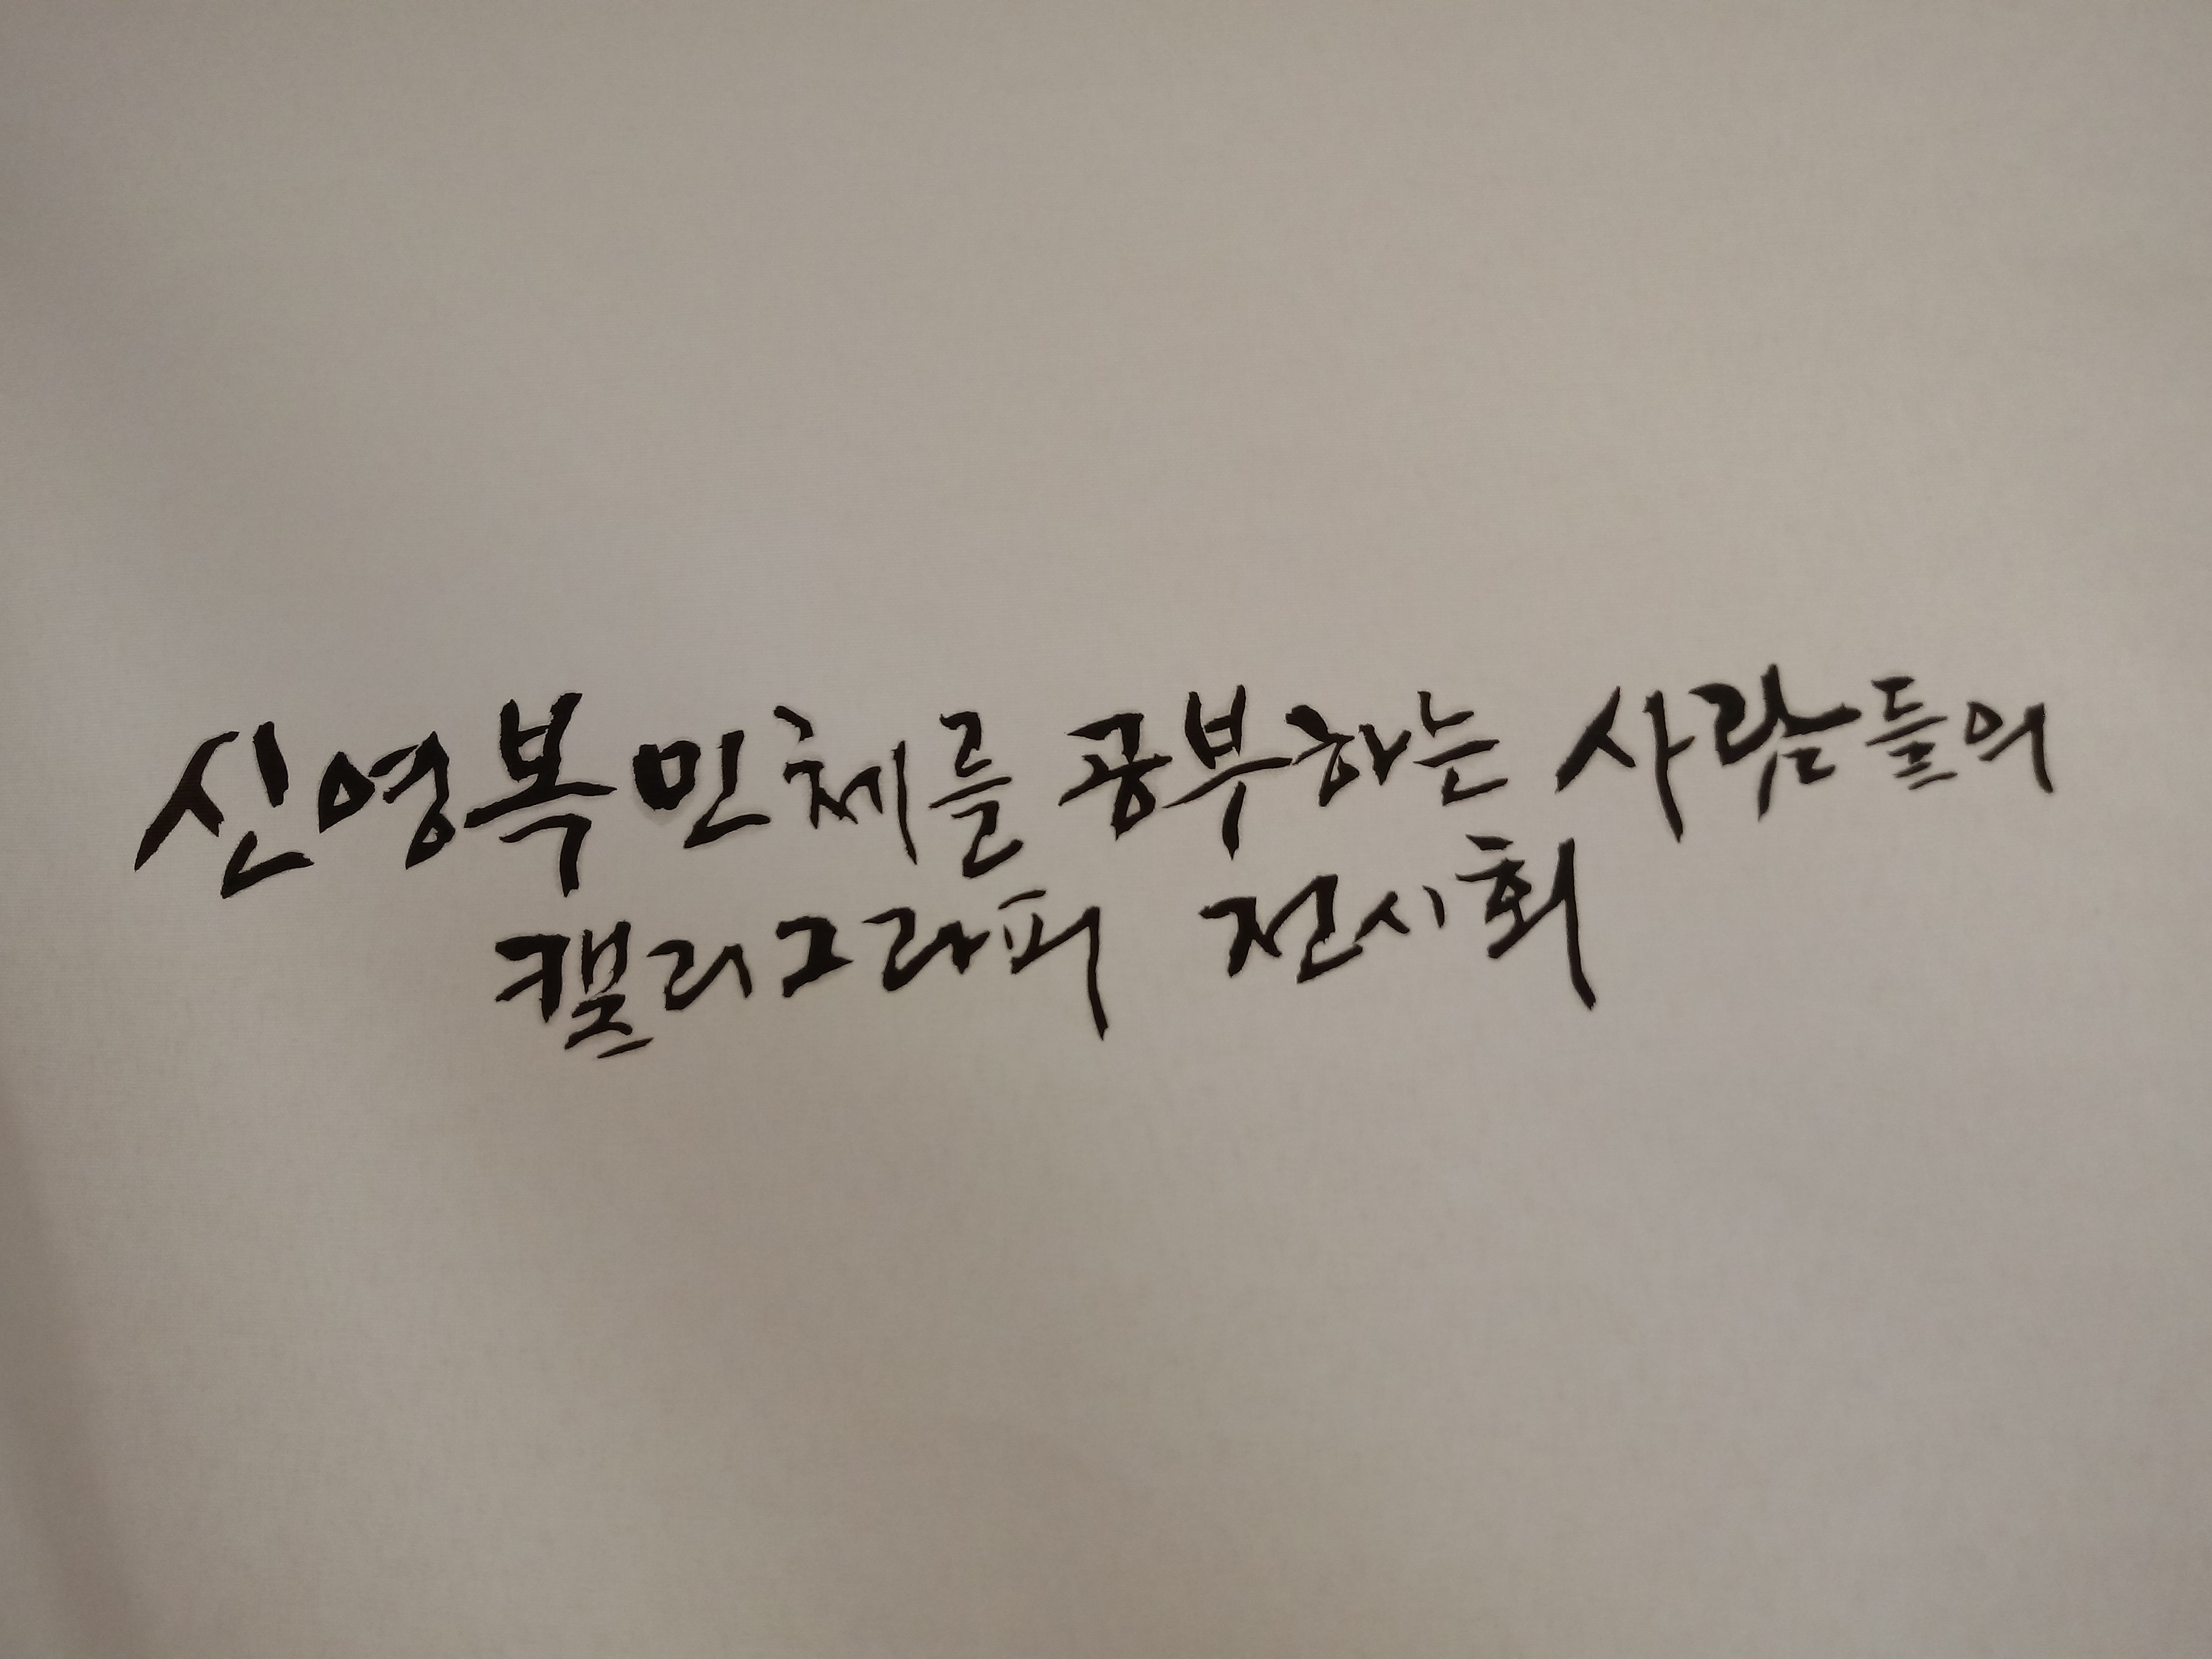 신영복민체를 공부하는 사람들의
캘리그라피 전시회